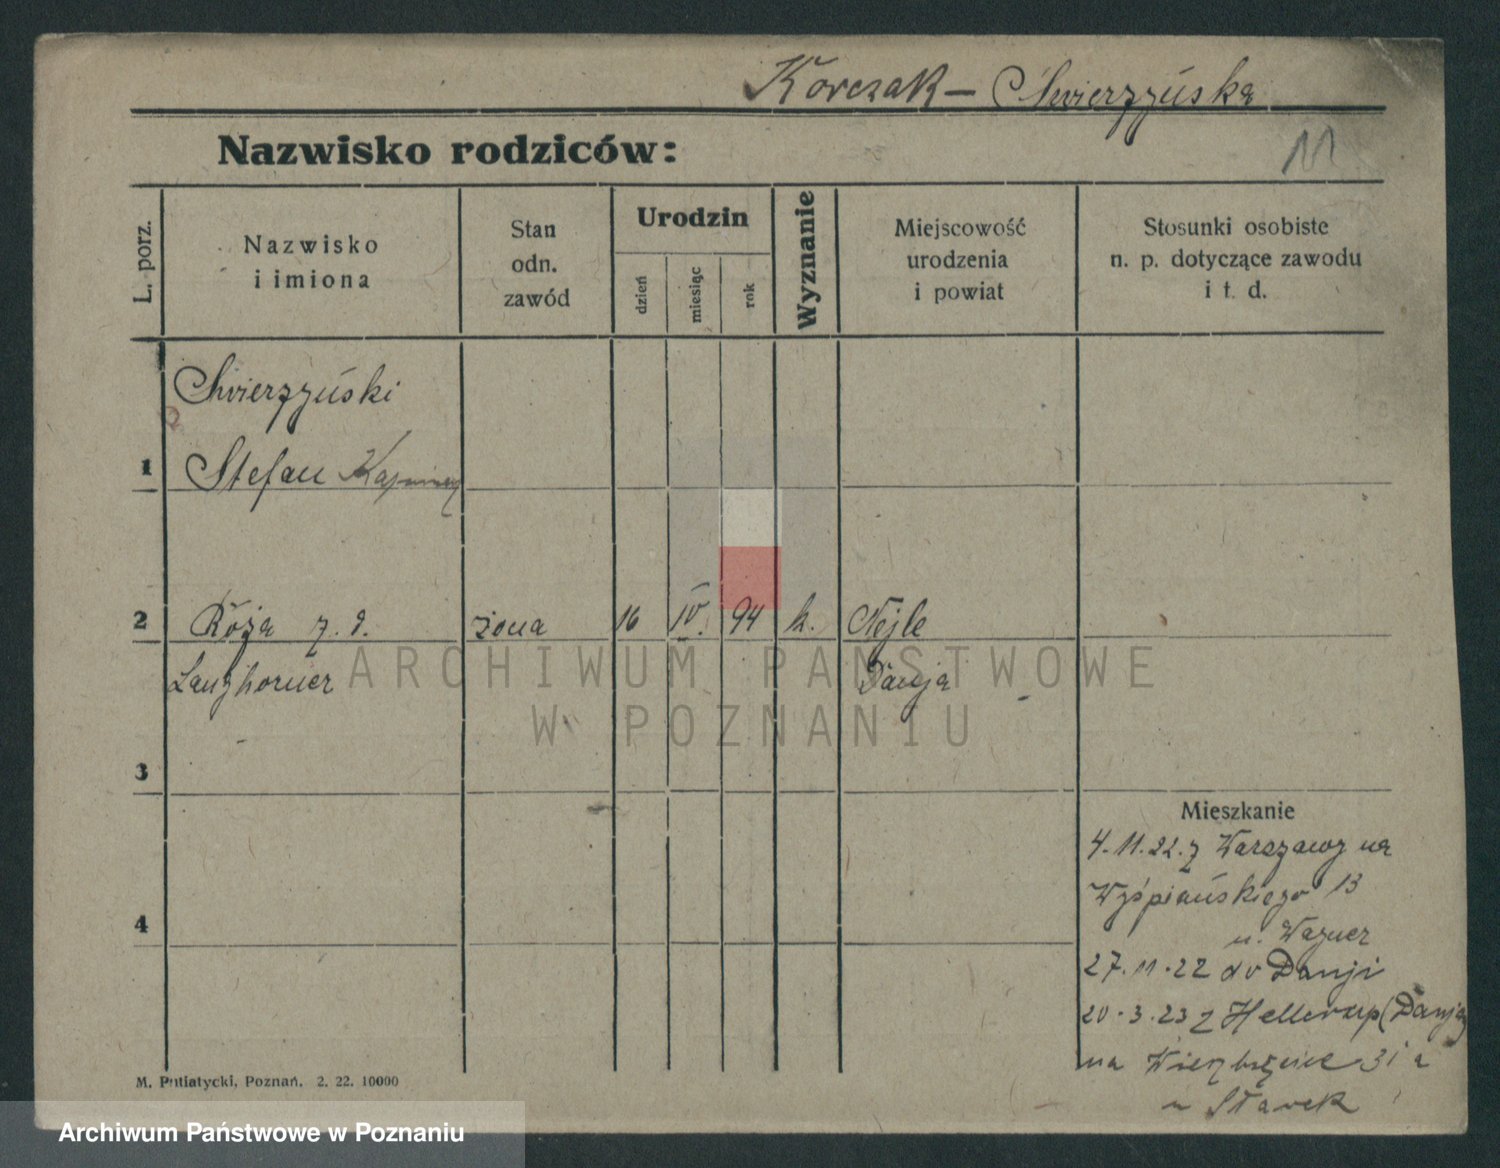 Korczak - Świerzyńska
Nazwisko rodziców:
11
L. porz.
Nazwisko
i imiona
Stan
odn.
zawód
Urodzin
dzień
miesiąc
rok
Wyznanie
Miejscowość
urodzenia
i powiat
Stosunki osobiste
n. p. dotyczące zawodu
i t. d.
Świerzyński
1 Stefan
2 Róża z. d. żona 16 IV. 94 k. Nejle
Langhorner Danja
ARCHIWUM PAŃSTWOWE
W POZNANIU
3
Mieszkanie
4.11.22. z Warszawy na
Wyśpiańskiego 13
u. Wagner
4
27.11.22 do Danji
20.3.23 z Hellerup (Danja)
na 31 a
u Sławek
M. Putiatycki, Poznań. 2. 22. 10000
Archiwum Państwowe w Poznaniu